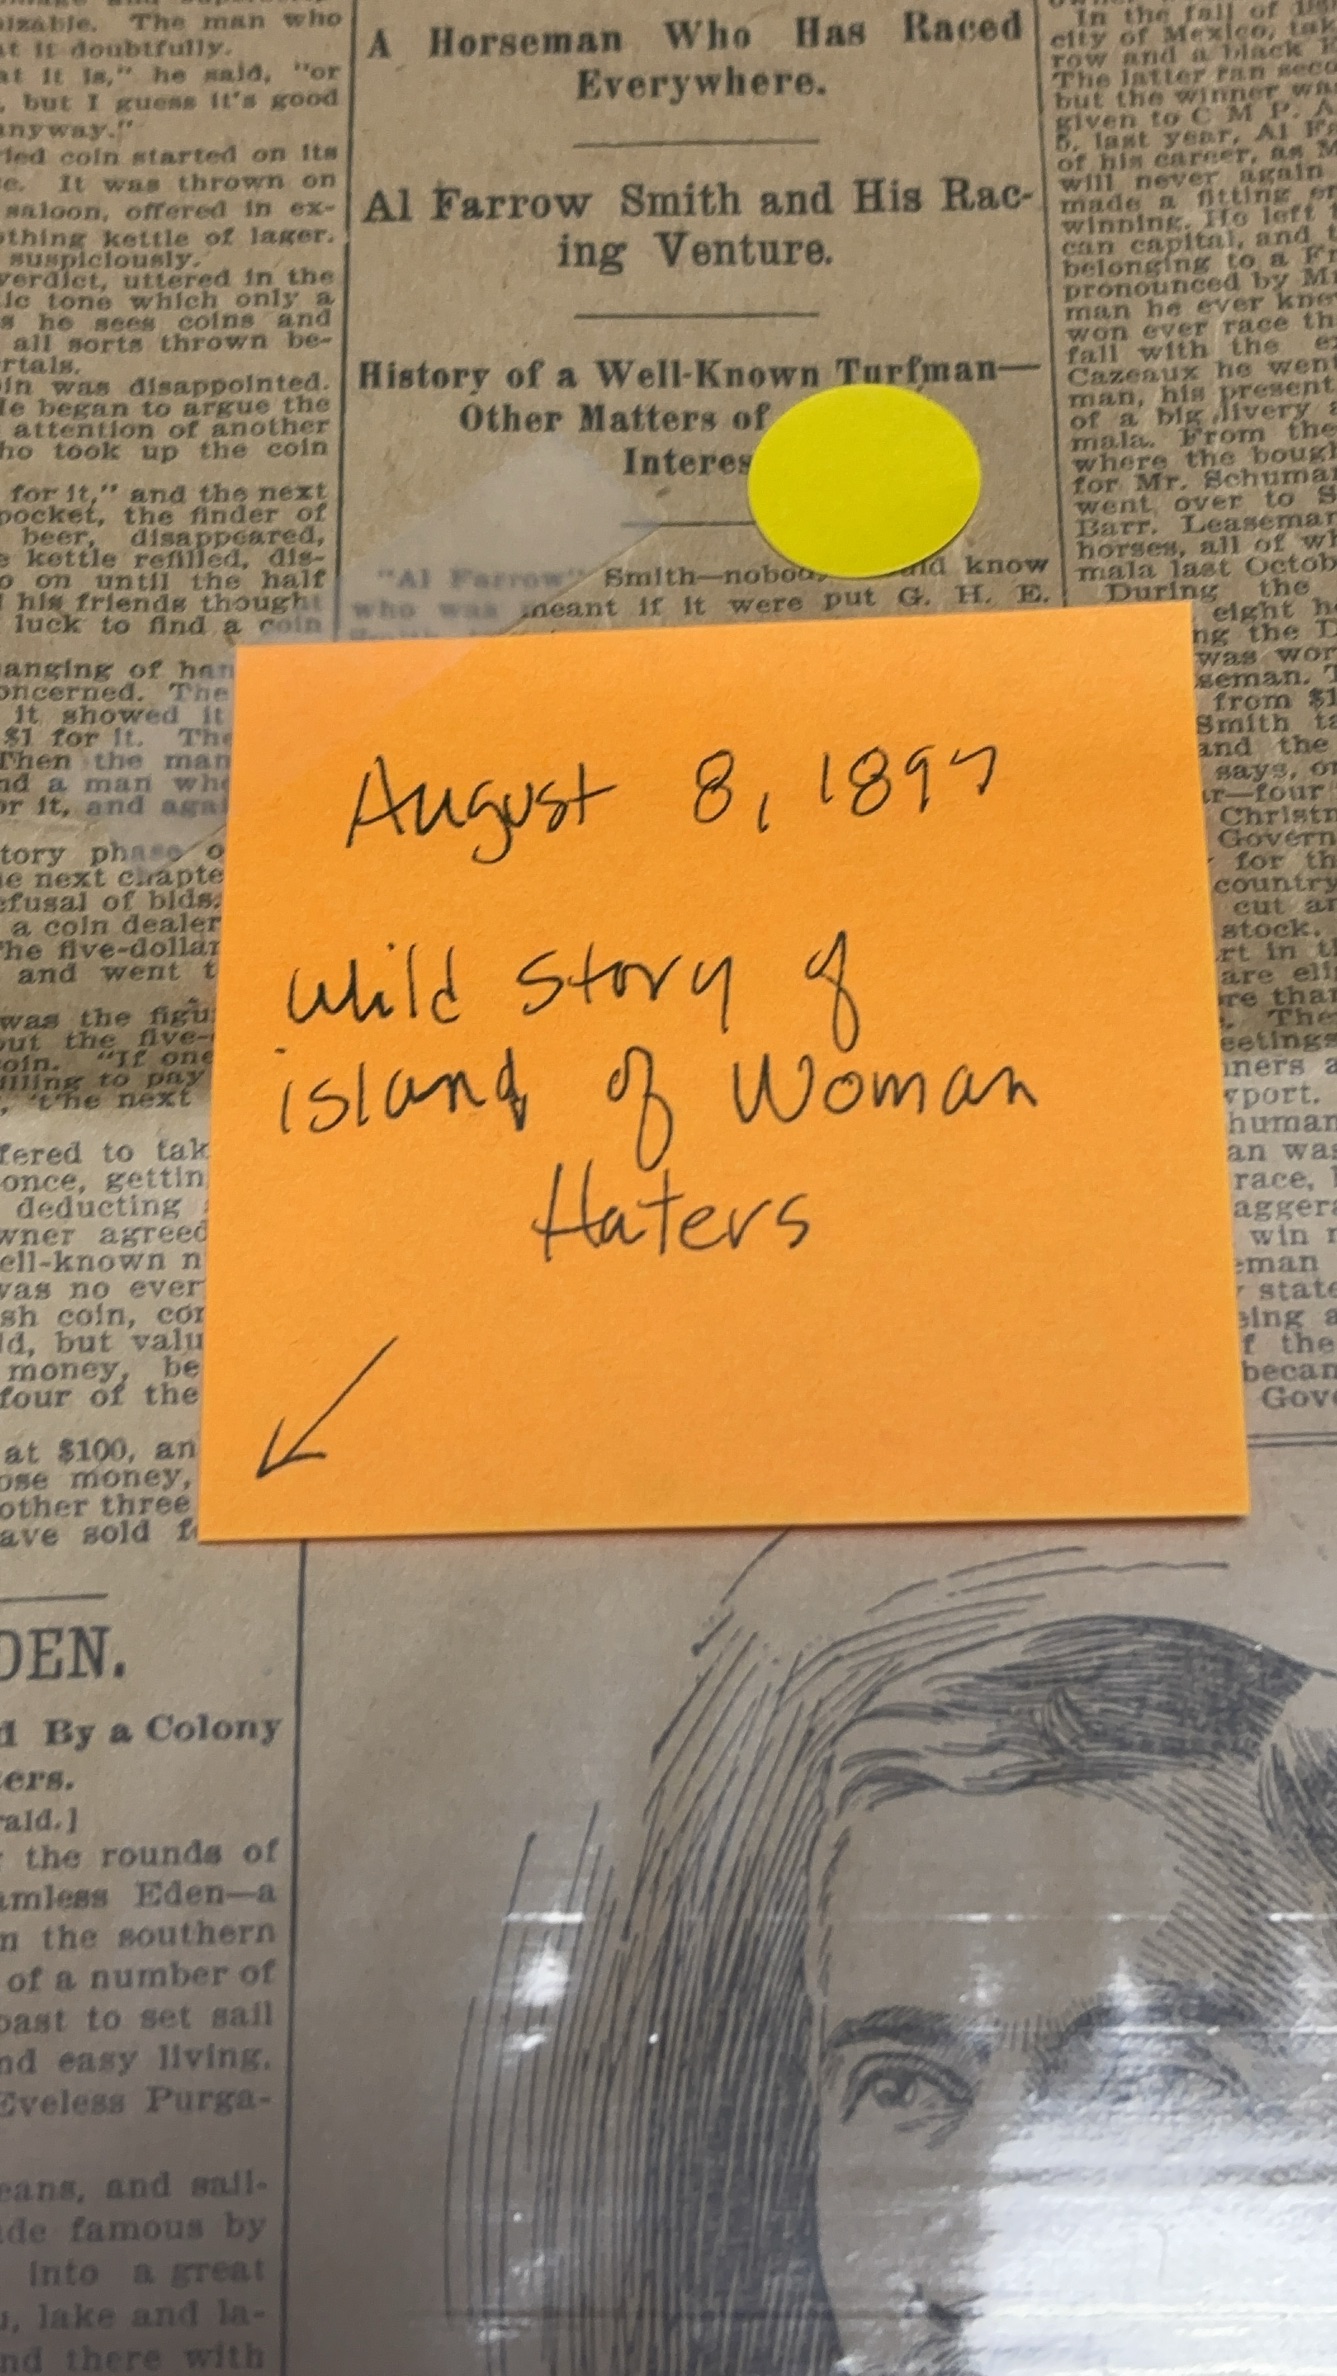 izable. The man who
at it doubtfully.
at it is," he said, "or
, but I guess it's good
anyway."
ried coin started on its
e. It was thrown on
saloon, offered in ex-
othing kettle of lager.
suspiciously.
verdict, uttered in the
ic tone which only a
s he sees coins and
all sorts thrown be-
rtals.
oin was disappointed.
He began to argue the
attention of another
ho took up the coin
for it," and the next
pocket, the finder of
beer, disappeared,
e kettle refilled, dis-
o on until the half
his friends thought
luck to find a coin
anging of han
oncerned. The
it showed it
$1 for it. The
Then the man
nd a man who
or it, and agai
tory phase o
he next chapte
efusal of bids.
a coin dealer
The five-dollar
and went t
was the figu
but the five-
coin. "If one
illing to pay
, the next
fered to tak
once, gettin
deducting
wner agreed
ell-known n
was no ever
sh coin, cor
ld, but valu
money, be
four of the
at $100, an
ose money,
other three
ave sold f
DEN.
d By a Colony
ers.
rald.]
the rounds of
amless Eden—a
n the southern
of a number of
oast to set sail
nd easy living.
Eveless Purga-
eans, and sail-
ade famous by
into a great
, lake and la-
nd there with
A Horseman Who Has Raced
Everywhere.
Al Farrow Smith and His Rac-
ing Venture.
History of a Well-Known Turfman—
Other Matters of
Interes
"Al Farrow" Smith—nobody know
who was meant if it were put G. H. E.
August 8, 1897
Wild story of
island of Woman
Haters
In the fall of 189
city of Mexico, tak
row and a black
The latter ran seco
but the winner wa
given to C M P. A
5, last year, Al F
of his career, as M
will never again
made a fitting en
winning. He left
can capital, and t
belonging to a Fr
pronounced by M
man he ever kne
won ever race th
fall with the e
Cazeaux he went
man, his present
of a big livery a
mala. From the
where the bough
for Mr. Schuma
went over to S
Barr. Leaseman
horses, all of wh
mala last Octob
During the
eight h
ng the D
was wor
seman. T
from $1
Smith ta
and the
says, or
ar—four
Christn
Govern
for th
country
cut an
stock.
rt in th
are eli
re than
. The
eetings
nners a
wport.
human
an was
race,
aggera
win r
eman
state
eing a
f the
becan
Gove